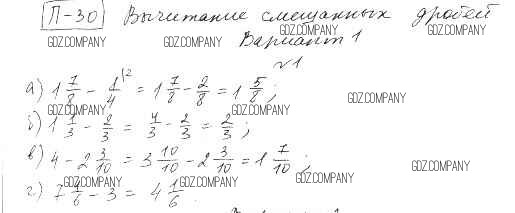 П-30 Вычитание смешанных дробей
GDZ.COMPANY GDZ.COMPANY GDZ.COMPANY GDZ.COMPANY
Вариант 1
№1
а) 1 7/8 - 1/4 \2 = 1 7/8 - 2/8 = 1 5/8;
GDZ.COMPANY GDZ.COMPANY
б) 1 1/3 - 2/3 = 4/3 - 2/3 = 2/3;
в) 4 - 2 3/10 = 3 10/10 - 2 3/10 = 1 7/10;
GDZ.COMPANY
г) 7 1/6 - 3 = 4 1/6
GDZ.COMPANY GDZ.COMPANY GDZ.COMPANY